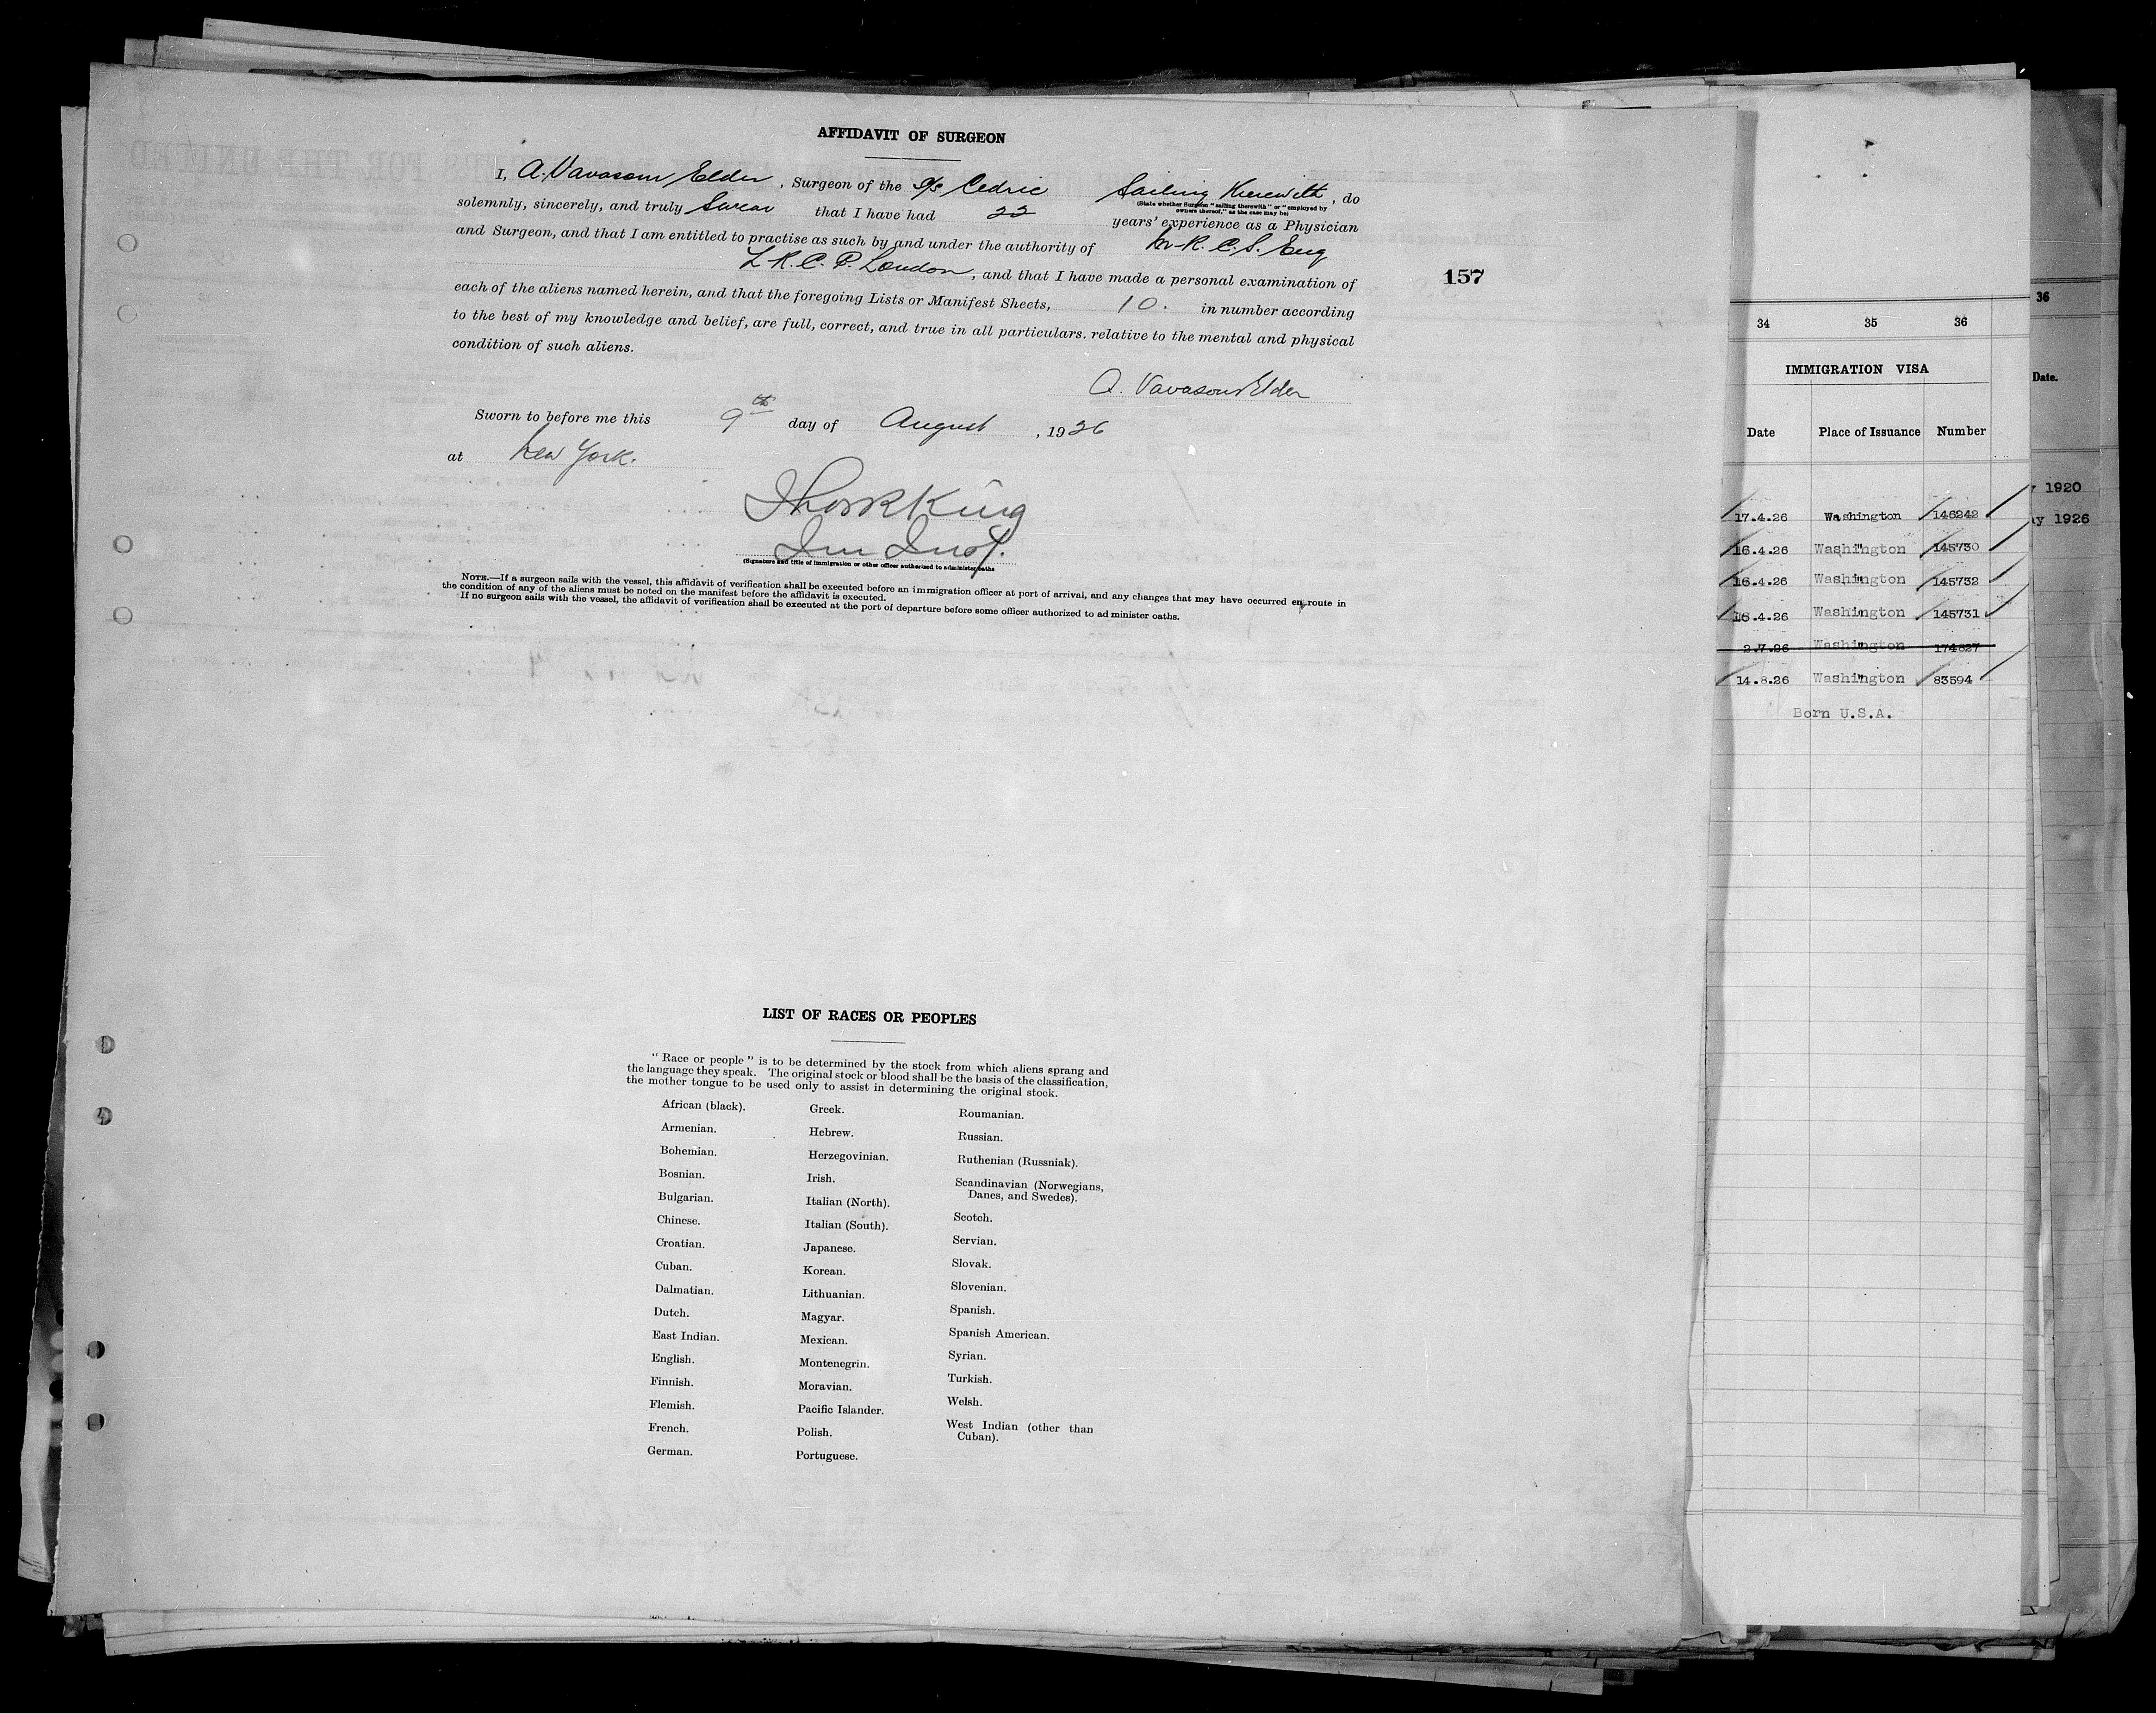 AFFIDAVIT OF SURGEON
I, A. Vavasour Elder, Surgeon of the S/S Cedric Sailing Therewith, do
(State whether Surgeon "sailing therewith" or "employed by
owners thereof," as the case may be)
solemnly, sincerely, and truly Swear that I have had 22 years' experience as a Physician
and Surgeon, and that I am entitled to practise as such by and under the authority of M.R.C.S. Eng
L.R.C.P. London, and that I have made a personal examination of
each of the aliens named herein, and that the foregoing Lists or Manifest Sheets, 10. in number according
to the best of my knowledge and belief, are full, correct, and true in all particulars. relative to the mental and physical
condition of such aliens.
A. Vavasour Elder
Sworn to before me this 9th day of August, 1926
at New York.
King
Im Insp.
(Signature and title of immigration or other officer authorized to administer oaths
NOTE.—If a surgeon sails with the vessel, this affidavit of verification shall be executed before an immigration officer at port of arrival, and any changes that may have occurred en route in
the condition of any of the aliens must be noted on the manifest before the affidavit is executed.
If no surgeon sails with the vessel, the affidavit of verification shall be executed at the port of departure before some officer authorized to ad minister oaths.
157
LIST OF RACES OR PEOPLES
"Race or people" is to be determined by the stock from which aliens sprang and
the language they speak. The original stock or blood shall be the basis of the classification,
the mother tongue to be used only to assist in determining the original stock.
African (black).
Armenian.
Bohemian.
Bosnian.
Bulgarian.
Chinese.
Croatian.
Cuban.
Dalmatian.
Dutch.
East Indian.
English.
Finnish.
Flemish.
French.
German.
Greek.
Hebrew.
Herzegovinian.
Irish.
Italian (North).
Italian (South).
Japanese.
Korean.
Lithuanian.
Magyar.
Mexican.
Montenegrin.
Moravian.
Pacific Islander.
Polish.
Portuguese.
Roumanian.
Russian.
Ruthenian (Russniak).
Scandinavian (Norwegians,
Danes, and Swedes).
Scotch.
Servian.
Slovak.
Slovenian.
Spanish.
Spanish American.
Syrian.
Turkish.
Welsh.
West Indian (other than
Cuban).
34 35 36
IMMIGRATION VISA
Date Place of Issuance Number
17.4.26 Washington 146242
16.4.26 Washington 145730
16.4.26 Washington 145732
16.4.26 Washington 145731
2.7.26 Washington 174827
14.8.26 Washington 83594
Born U.S.A.
36
Date.
1920
1926